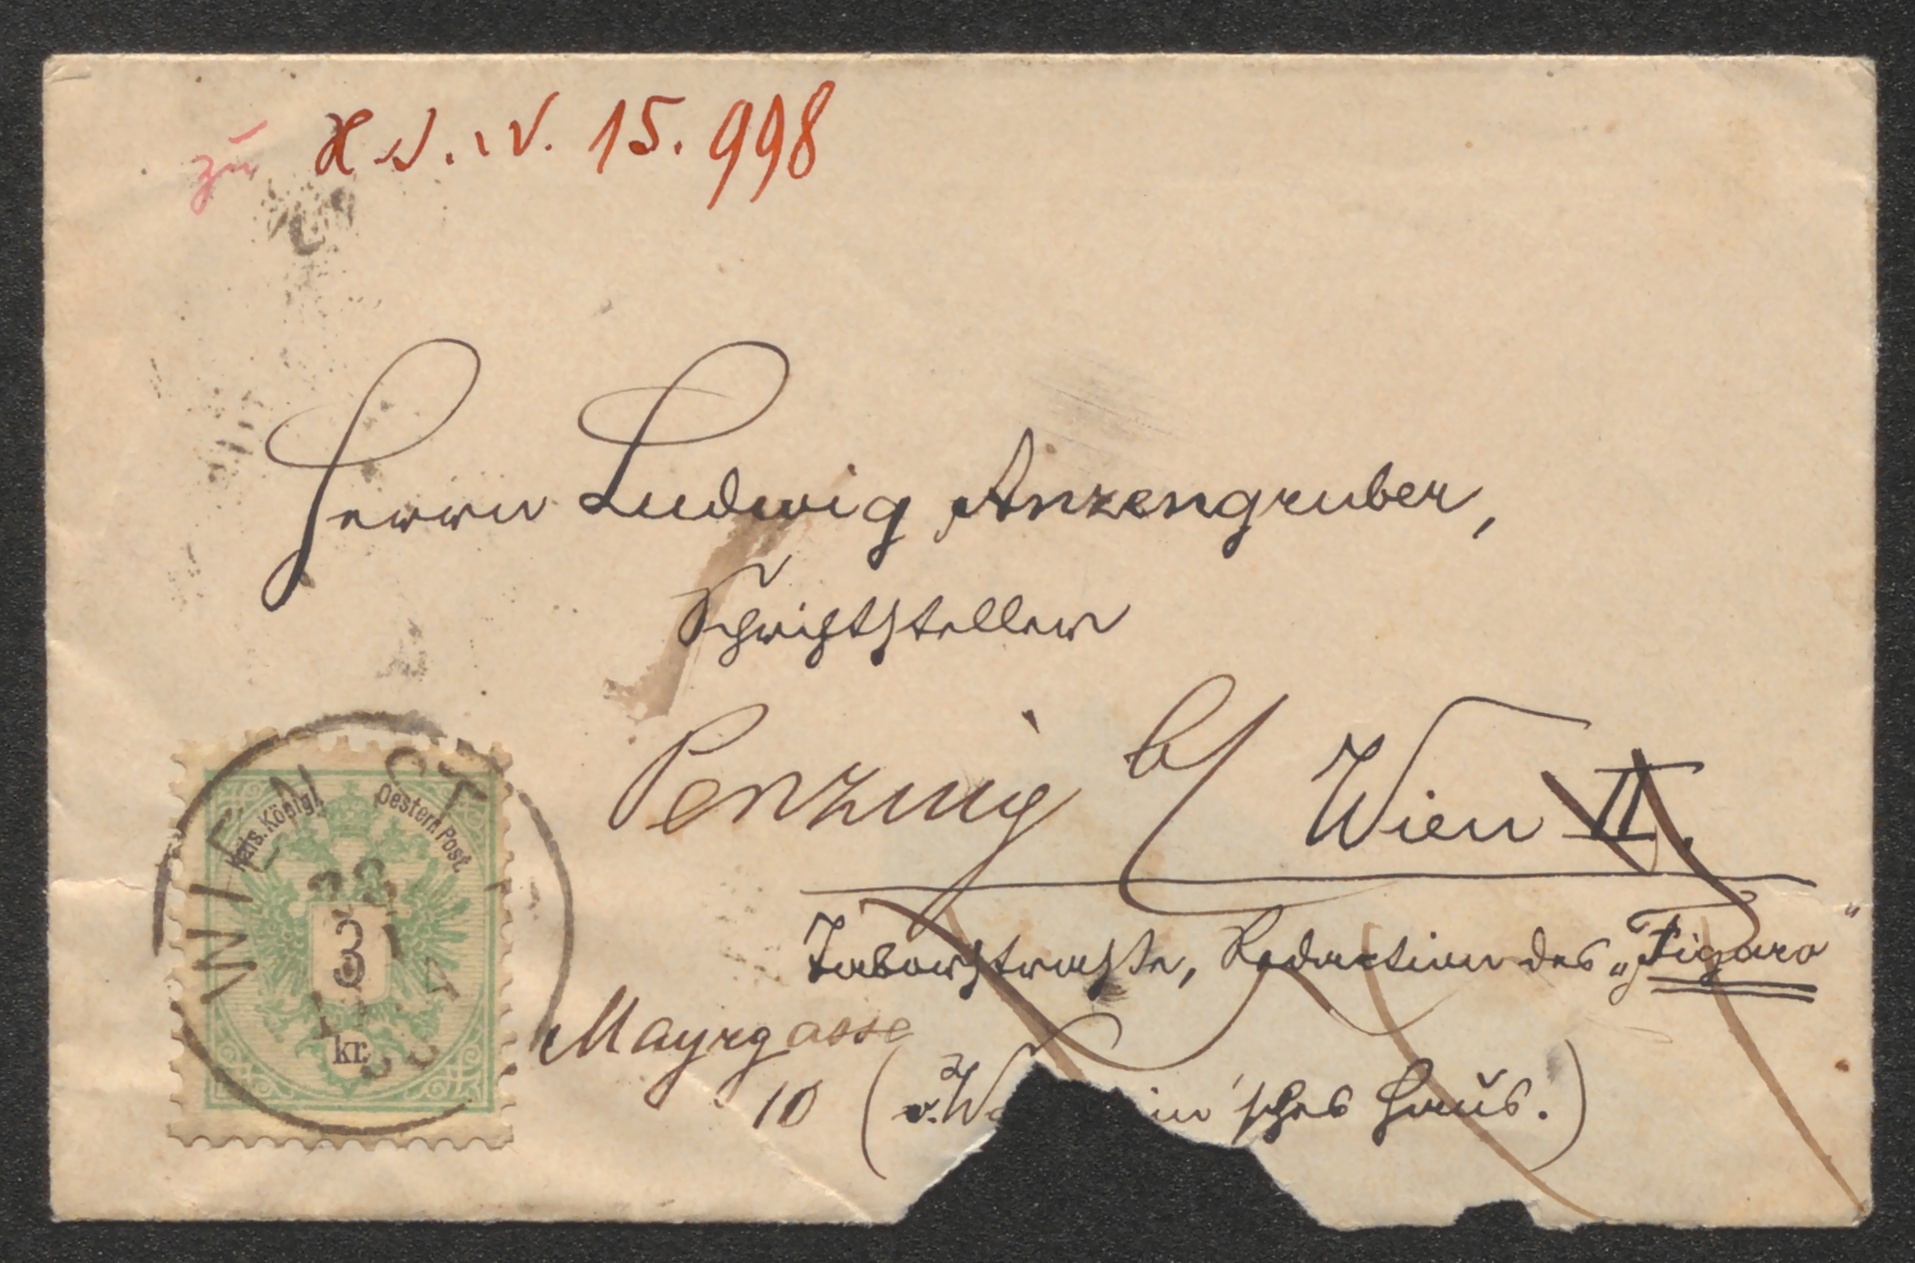 zu H. I. N. 15.998
Herrn Ludwig Anzengruber,
Schriftsteller
Penzing b/ Wien II.
Taborstraße, Redaction des „Figaro“
Mayrgasse
10 (v. in'sches Haus.)
WIEN
Kais. Königl. Oestern Post
3
kr.